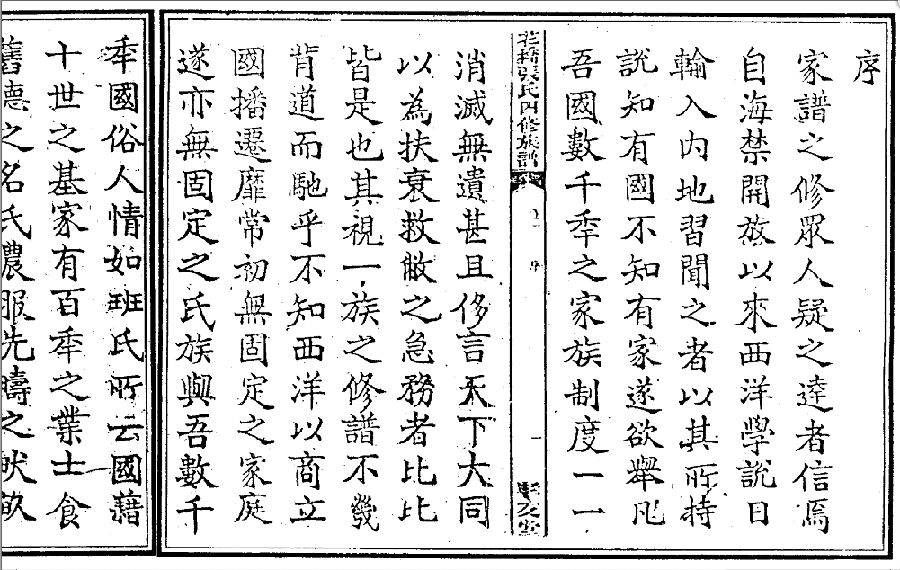 序
家譜之修眾人疑之達者信焉
自海禁開放以來西洋學說日
輸入內地習聞之者以其所持
說知有國不知有家遂欲舉凡
吾國數千秊之家族制度一一
花橋張氏四修族譜
序
一
消滅無遺甚且侈言天下大同
以為扶衰救敝之急務者比比
皆是也其視一族之修譜不幾
背道而馳乎不知西洋以商立
國播遷靡常初無固定之家庭
遂亦無固定之氏族與吾數千
秊國俗人情如班氏所云國藉
十世之基家有百秊之業士食
舊德之名氏農服先疇之畎畝